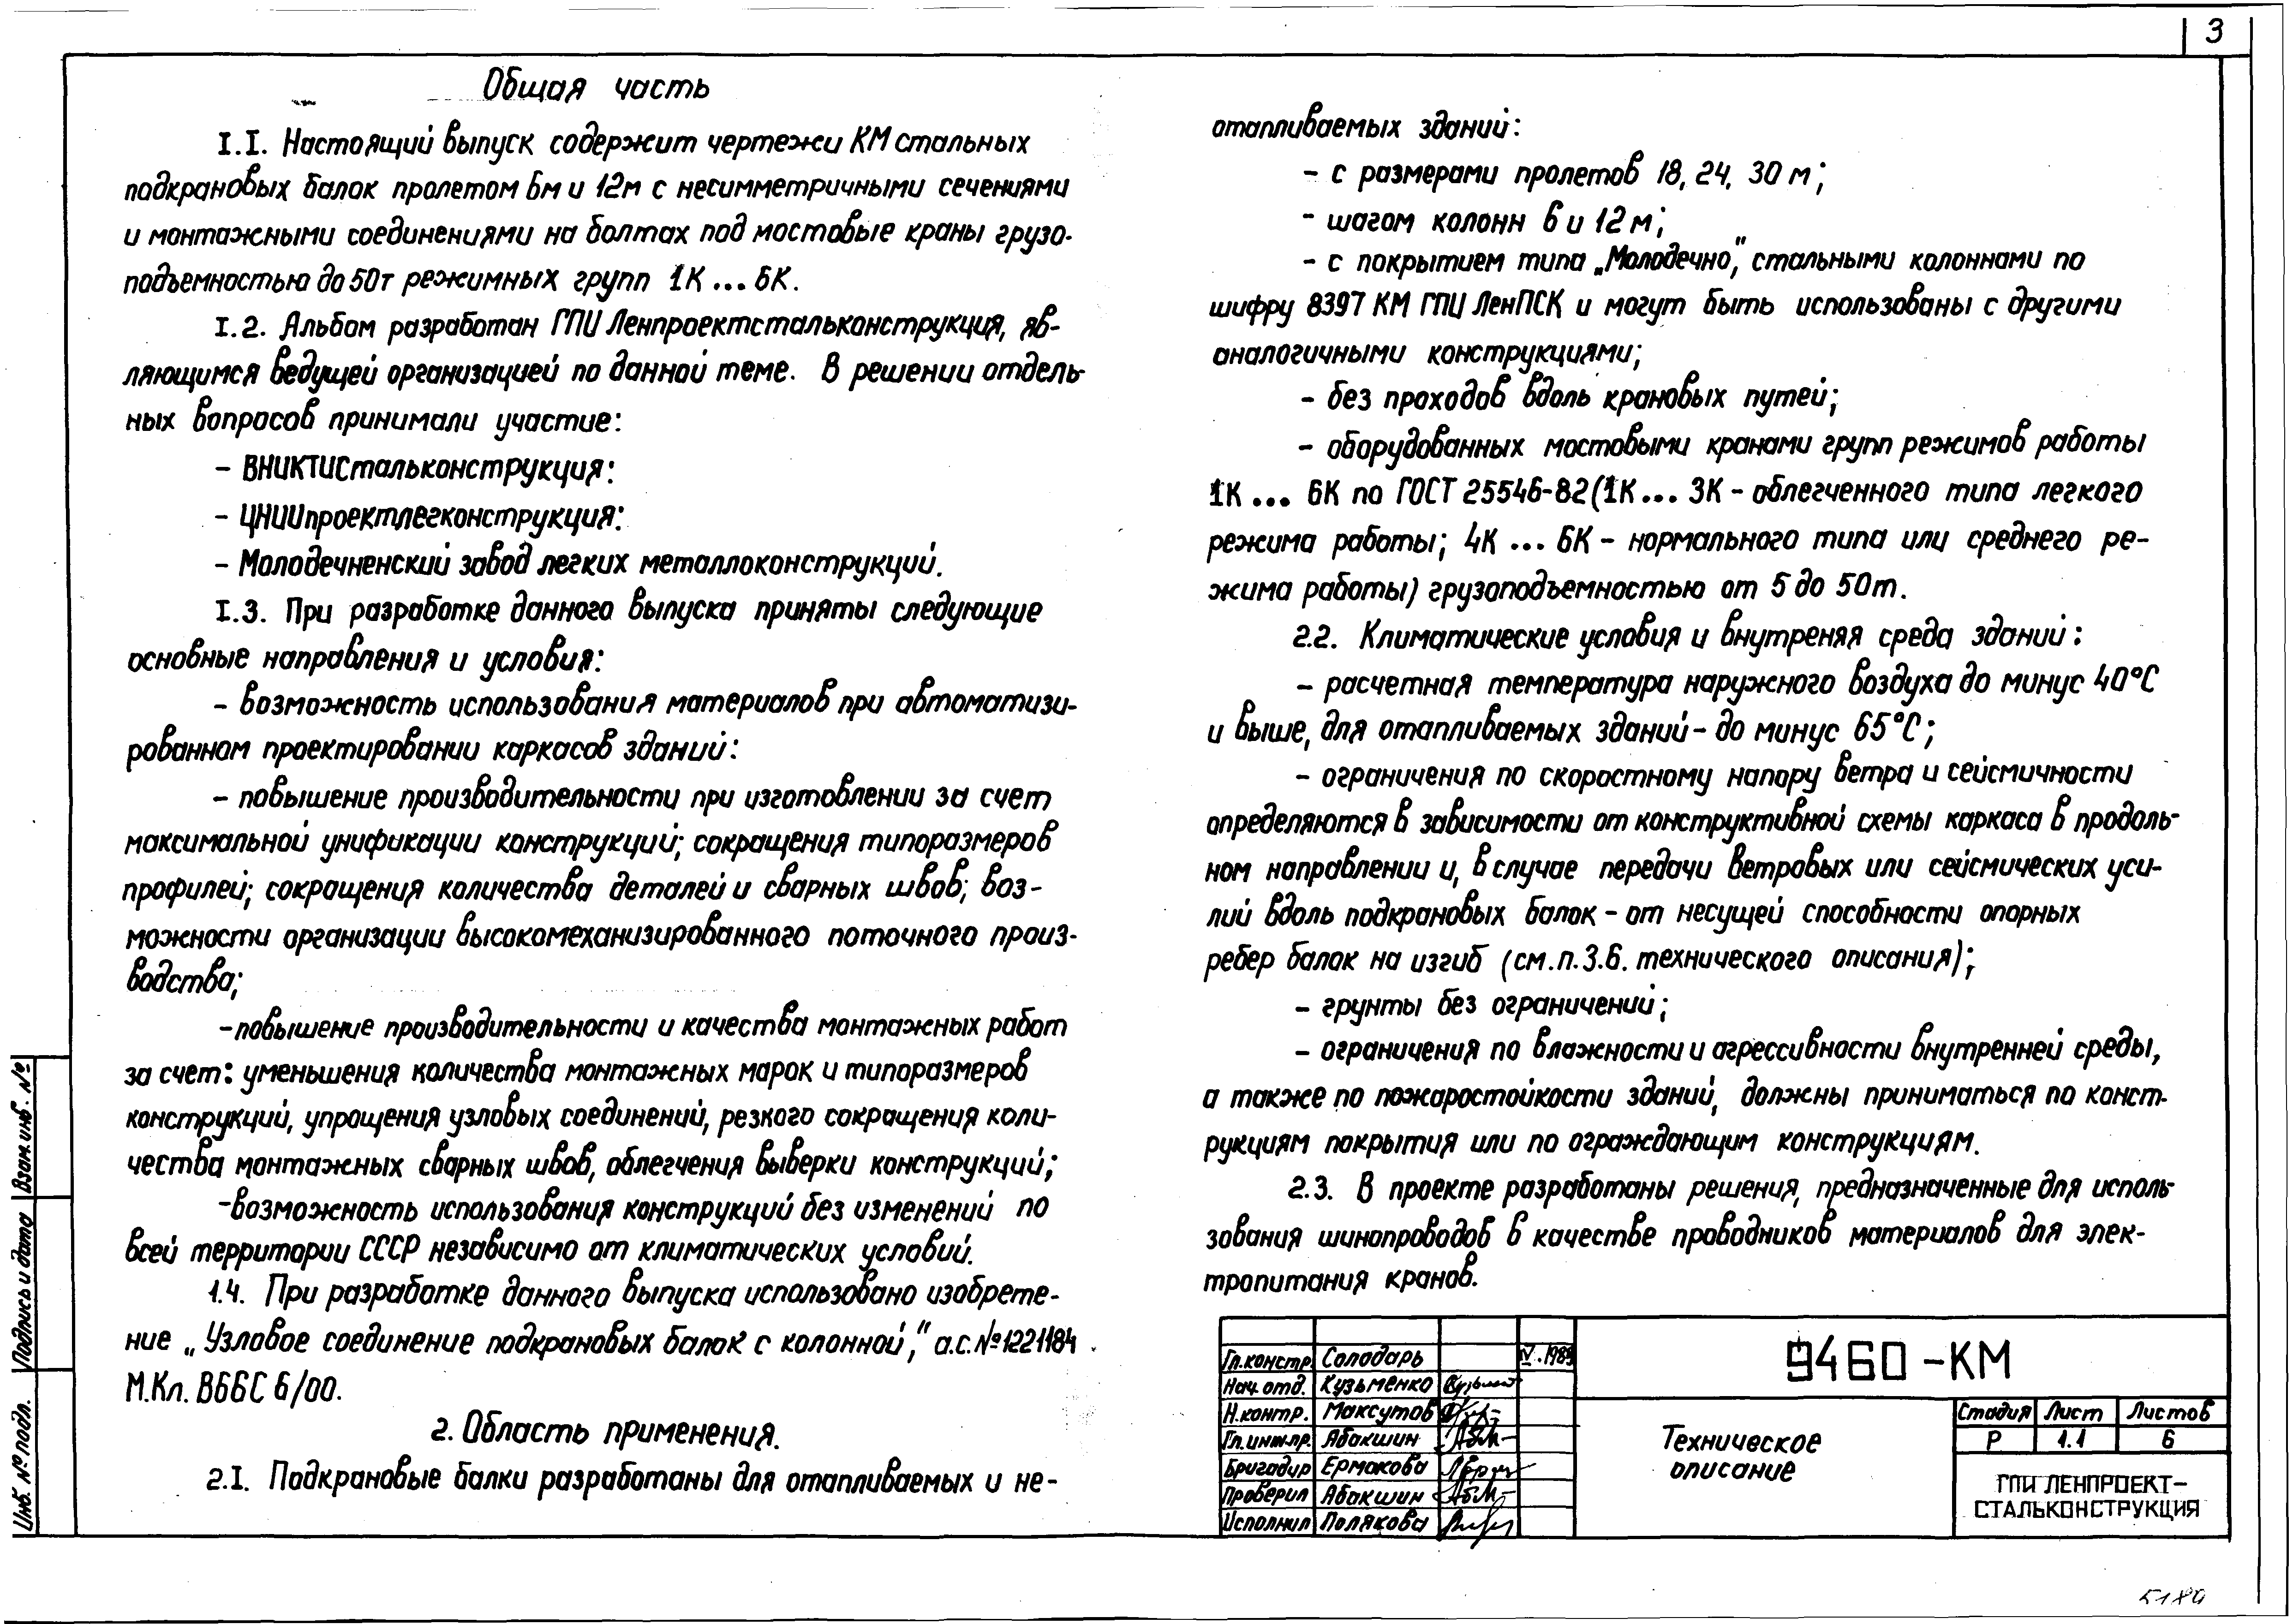 3
Общая часть
I.I. Настоящий выпуск содержит чертежи КМ стальных
подкрановых балок пролетом 6м и 12м с несимметричными сечениями
и монтажными соединениями на болтах под мостовые краны грузо-
подъемностью до 50т режимных групп 1К ... 6К.
I.2. Альбом разработан ГПИ Ленпроектстальконструкция, яв-
ляющимся ведущей организацией по данной теме. В решении отдель-
ных вопросов принимали участие:
- ВНИКТИСтальконструкция:
- ЦНИИпроектлегконструкция:
- Молодечненский завод легких металлоконструкций.
I.3. При разработке данного выпуска приняты следующие
основные направления и условия:
- возможность использования материалов при автоматизи-
рованном проектировании каркасов зданий:
- повышение производительности при изготовлении за счет
максимальной унификации конструкций; сокращения типоразмеров
профилей; сокращения количества деталей и сварных швов; воз-
можности организации высокомеханизированного поточного произ-
водства;
- повышение производительности и качества монтажных работ
за счет: уменьшения количества монтажных марок и типоразмеров
конструкций, упрощения узловых соединений, резкого сокращения коли-
чества монтажных сварных швов, облегчения выверки конструкций;
- возможность использования конструкций без изменений по
всей территории СССР независимо от климатических условий.
1.4. При разработке данного выпуска использовано изобрете-
ние „Узловое соединение подкрановых балок с колонной“, а.с. №1221184
М.Кл. В66С 6/00.
2. Область применения.
2.I. Подкрановые балки разработаны для отапливаемых и не-
отапливаемых зданий:
- с размерами пролетов 18, 24, 30 м;
- шагом колонн 6 и 12 м;
- с покрытием типа „Молодечно“, стальными колоннами по
шифру 8397 КМ ГПИ ЛенПСК и могут быть использованы с другими
аналогичными конструкциями;
- без проходов вдоль крановых путей;
- оборудованных мостовыми кранами групп режимов работы
1К ... 6К по ГОСТ 25546-82 (1К ... 3К - облегченного типа легкого
режима работы; 4К ... 6К - нормального типа или среднего ре-
жима работы) грузоподъемностью от 5 до 50т.
2.2. Климатические условия и внутреняя среда зданий:
- расчетная температура наружного воздуха до минус 40°С
и выше, для отапливаемых зданий - до минус 65°С;
- ограничения по скоростному напору ветра и сейсмичности
определяются в зависимости от конструктивной схемы каркаса в продоль-
ном направлении и, в случае передачи ветровых или сейсмических уси-
лий вдоль подкрановых балок - от несущей способности опорных
ребер балок на изгиб (см. п. 3.6. технического описания);
- грунты без ограничений;
- ограничения по влажности и агрессивности внутренней среды,
а также по пожаростойкости зданий, должны приниматься по конст-
рукциям покрытия или по ограждающим конструкциям.
2.3. В проекте разработаны решения, предназначенные для исполь-
зования шинопроводов в качестве проводников материалов для элек-
тропитания кранов.
Гл.констр. Солодарь IV.1989
Нач. отд. Кузьменко
Н.контр. Максутов
Гл.инж.пр. Абакшин
Бригадир Ермакова
Проверил Абакшин
Исполнил Полякова
9460-КМ
Техническое
описание
Стадия Лист Листов
Р 1.1 6
ГПИ ЛЕНПРОЕКТ-
СТАЛЬКОНСТРУКЦИЯ
Инв. № подл. Подпись и дата Взам. инв. №